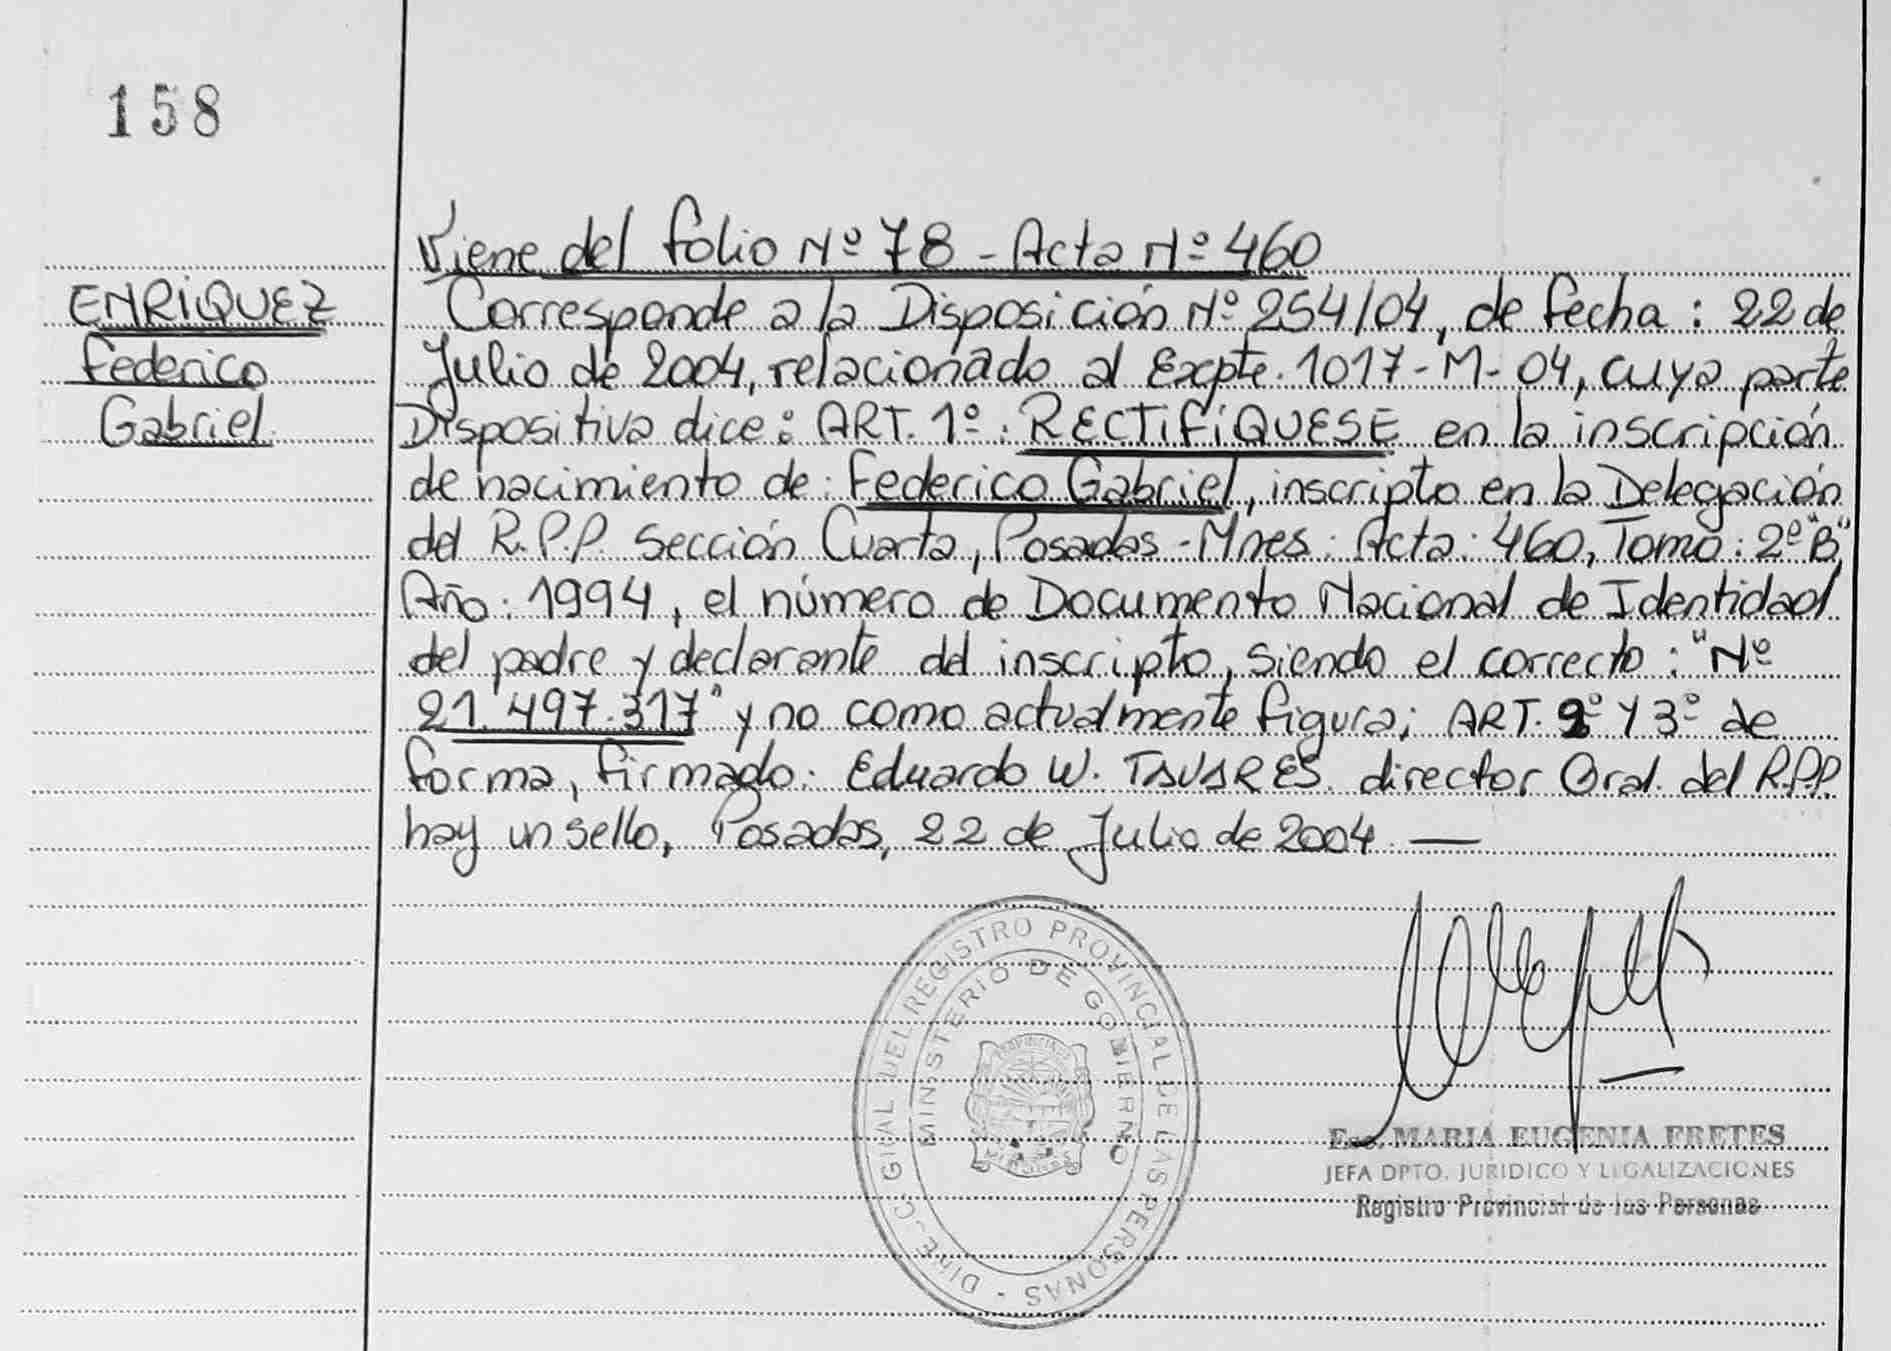 158
ENRIQUEZ
Federico
Gabriel.
Viene del folio Nº 78 - Acta Nº 460
Corresponde a la Disposición Nº 254/04, de fecha: 22 de
Julio de 2004, relacionado al Expte. 1017-M-04, cuya parte
Dispositiva dice: ART. 1º: RECTIFÍQUESE en la inscripción
de nacimiento de: Federico Gabriel, inscripto en la Delegación
del R.P.P. Sección Cuarta, Posadas - Mnes: Acta: 460, Tomo: 2º "B",
Año: 1994, el número de Documento Nacional de Identidad
del padre y declarante del inscripto, siendo el correcto: "Nº
21.497.317" y no como actualmente figura; ART. 2º Y 3º de
forma, firmado: Eduardo W. TAVARES. director Gral. del R.P.P.
hay un sello, Posadas, 22 de Julio de 2004. —
DIREC. GRAL DEL REGISTRO PROVINCIAL DE LAS PERSONAS -
MINISTERIO DE GOBIERNO
Esc. MARIA EUGENIA FRETES
JEFA DPTO. JURIDICO Y LEGALIZACIONES
Registro Provincial de las Personas